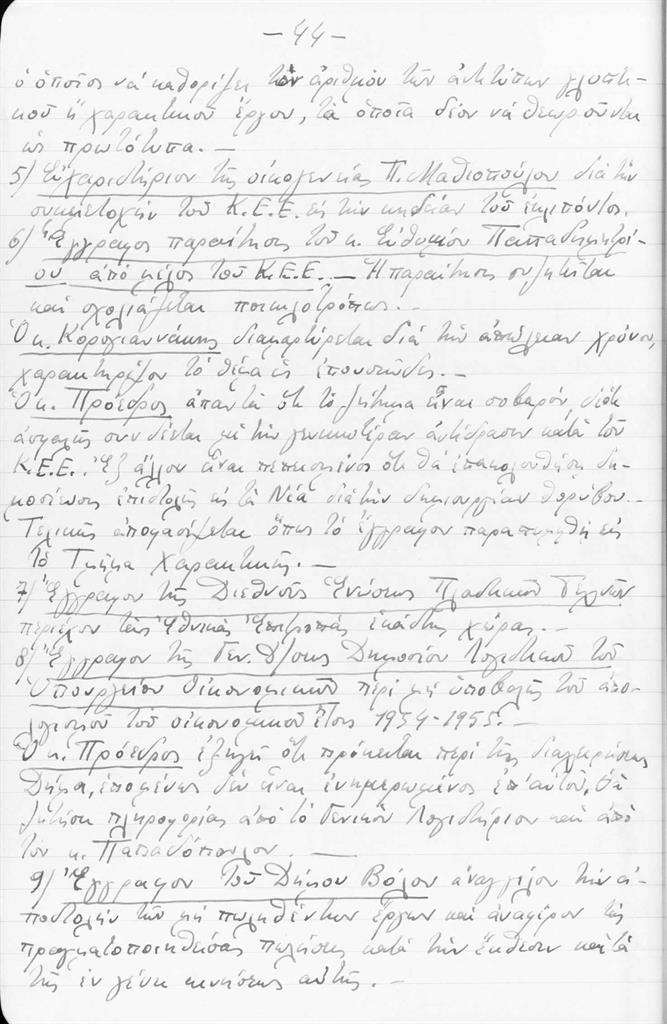 -44-
ὁ ὁποῖος νά καθορίζει τὸν ἀριθμόν τῶν ἀντιτύπων γλυπτι-
κοῦ ἤ χαρακτικοῦ ἔργου, τά ὁποῖα δέον νά θεωροῦνται
ὡς πρωτότυπα. -
5) Εὐχαριστήριον τῆς οἰκογενείας Π. Μαθιοπούλου διά τήν
συμμετοχήν τοῦ Κ.Ε.Ε. εἰς τήν κηδείαν τοῦ ἐκλιπόντος.
6) Ἔγγραφος παραίτησις τοῦ κ. Εὐθυμίου Παπαδημητρί-
ου ἀπό μέλος τοῦ Κ.Ε.Ε. - Ἡ παραίτησις συζητεῖται
καί σχολιάζεται ποικιλοτρόπως. -
Ὁ κ. Κορογιαννάκης διαμαρτύρεται διά τήν ἀπώλειαν χρόνου,
χαρακτηρίζων τό θέμα ὡς ἐπουσιῶδες. -
Ὁ κ. Πρόεδρος ἀπαντᾶ ὅτι τό ζήτημα εἶναι σοβαρόν, διότι
ἀσφαλῶς συνδέεται μέ τήν γενικωτέραν ἀντίδρασιν κατά τοῦ
Κ.Ε.Ε. Ἐξ ἄλλου εἶναι πεπεισμένος ὅτι θά ἐπακολουθήσῃ δη-
μοσίευσις ἐπιστολῆς εἰς τά Νέα διά τήν δημιουργίαν θορύβου. -
Τελικῶς ἀποφασίζεται ὅπως τό ἔγγραφον παραπεμφθῇ εἰς
τό Τμῆμα Χαρακτικῆς. -
7) Ἔγγραφον τῆς Διεθνοῦς Ἑνώσεως Πλαστικῶν Τεχνῶν
περιέχον τάς Ἐθνικάς Ἐπιτροπάς ἑκάστης χώρας. -
8) Ἔγγραφον τῆς Γεν. Δ/σεως Δημοσίου Λογιστικοῦ τοῦ
Ὑπουργείου Οἰκονομικῶν περί μή ὑποβολῆς τοῦ ἀπο-
λογισμοῦ τοῦ οἰκονομικοῦ ἔτους 1954-1955. -
Ὁ κ. Πρόεδρος ἐξηγεῖ ὅτι πρόκειται περί τῆς διαχειρίσεως
Δήμα, ἑπομένως δέν εἶναι ἐνημερωμένος ἐπ' αὐτοῦ. Θά
ζητήσῃ πληροφορίας ἀπό τό Γενικόν Λογιστήριον καί ἀπό
τον κ. Παπαδόπουλον. -
9) Ἔγγραφον τοῦ Δήμου Βόλου ἀναγγέλον τήν ἀ-
ποστολήν τῶν μή πωληθέντων ἔργων καί ἀναφέρον τάς
πραγματοποιηθείσας πωλήσεις κατά τήν ἔκθεσιν καί τά
τῆς ἐν γένει κινήσεως αὐτῆς. -